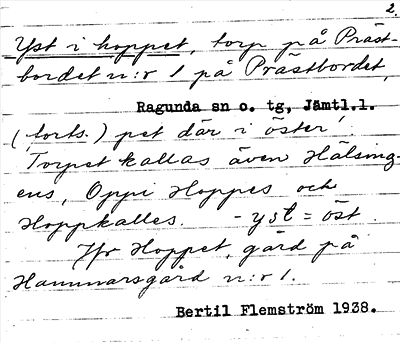 2.
Yst i hoppet, torp på Präst-
bordet n:r 1 på Prästbordet,
Ragunda sn o. tg, Jämtl.l.
(forts.) pet där i öster!
Torpet kallas även Hälsing-
ens, Oppi Hoppes och
Hoppkalles. - yst = öst.
Jfr Hoppet, gård på
Hammarsgård n:r 1.
Bertil Flemström 1938.